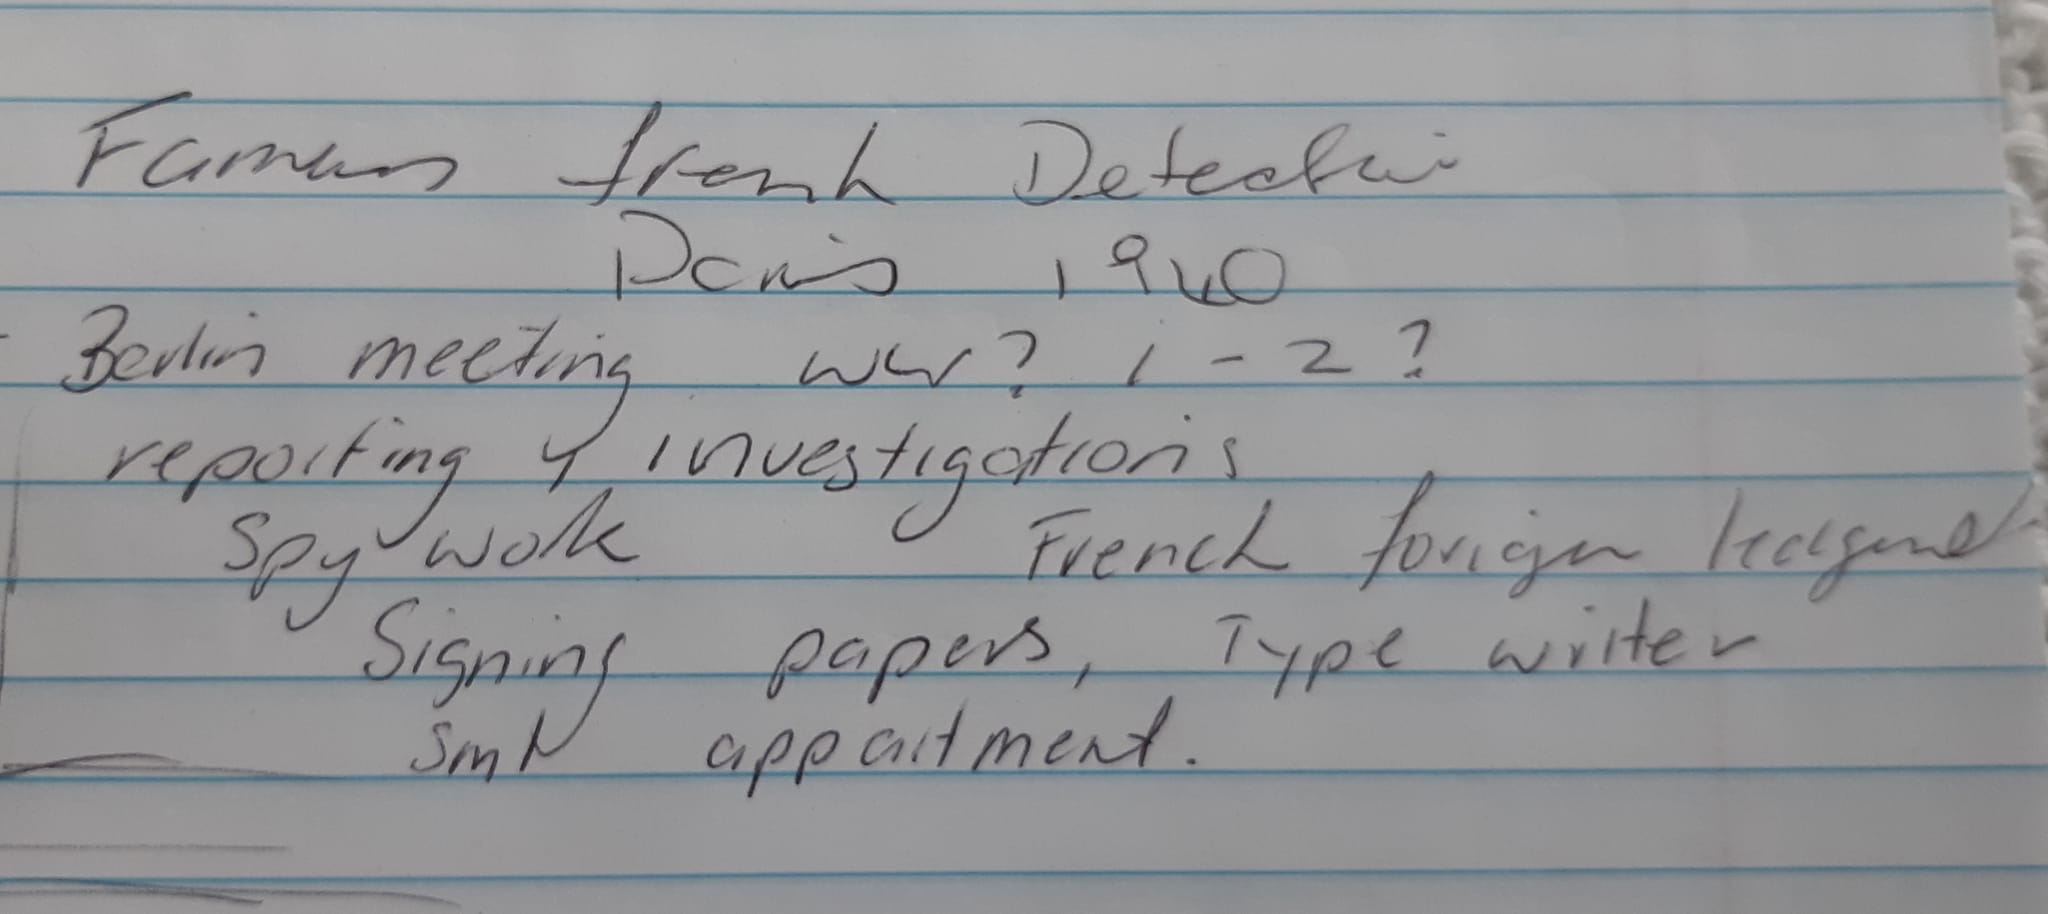 Famous french Detective
Paris 1940
Berlin meeting ww? 1-2?
reporting y investigations
Spy work French foriegn
Signing papers, Type writer
appartment.